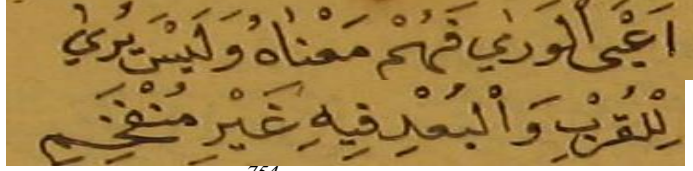 اَعْيَى الْوَرٰي فَهْمُ مَعْنَاهُ وَلَيْسَ يُرٰي
لِلْقُرْبِ وَالْبُعْدِ فِيهِ غَيْرِ مُنْفَخِمِ
754